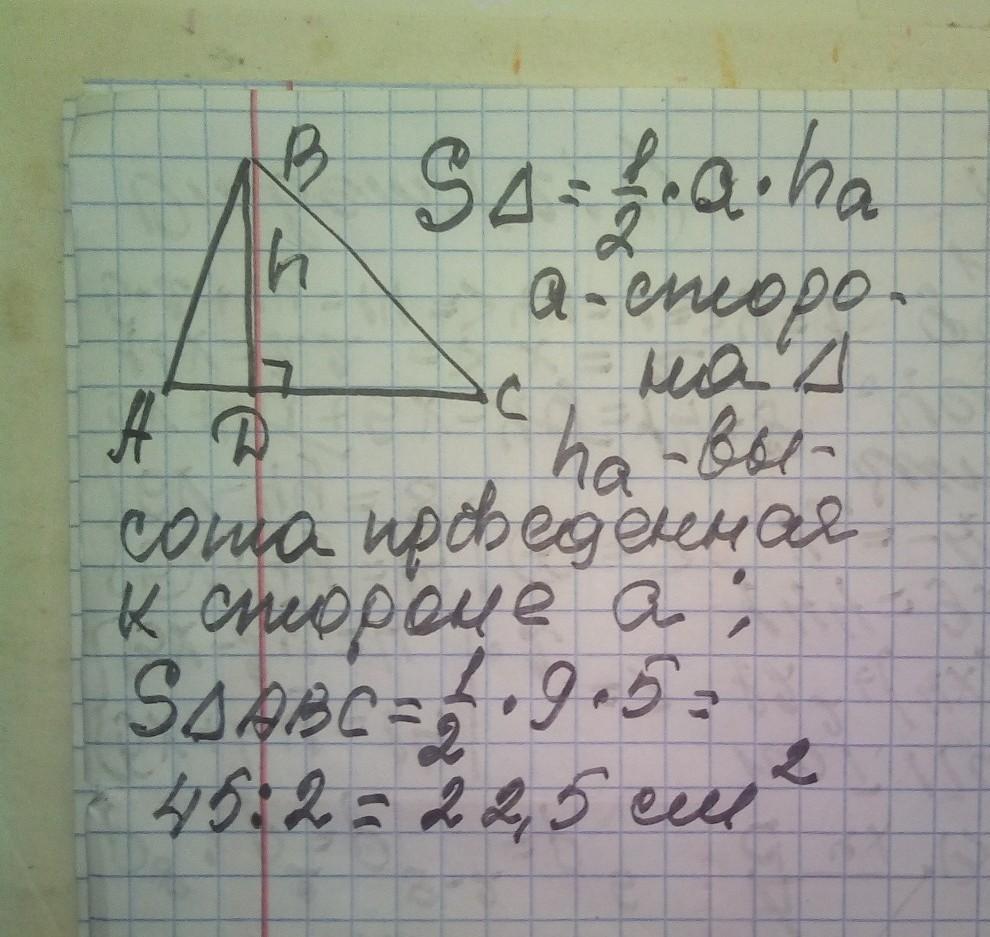 B
S△ = 1/2 · a · hₐ
h
a - сторо-
на △
A D C
hₐ - вы-
сота проведенная
к стороне a ;
S△ABC = 1/2 · 9 · 5 =
45:2 = 22,5 см²